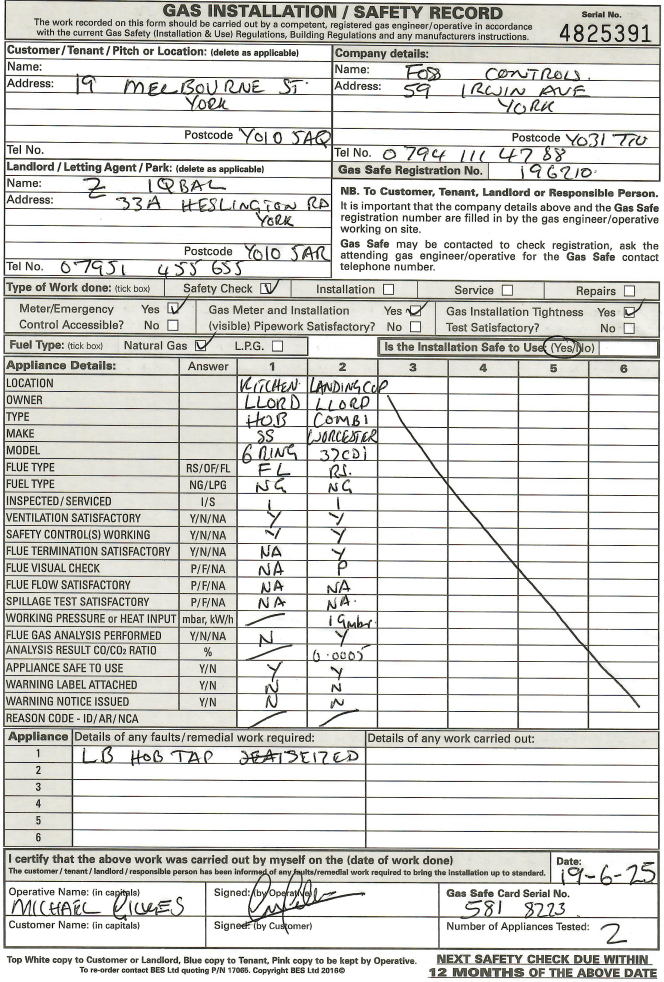 GAS INSTALLATION / SAFETY RECORD
The work recorded on this form should be carried out by a competent, registered gas engineer/operative in accordance
with the current Gas Safety (Installation & Use) Regulations, Building Regulations and any manufacturers instructions.
Serial No.
4825391
Customer / Tenant / Pitch or Location: (delete as applicable)
Name:
Address: 19 MELBOURNE ST.
YORK
Postcode YO10 5AQ
Tel No.
Company details:
Name: CONTROLS.
Address: 59 IRWIN AVE
YORK
Postcode YO31
Tel No. 0794 111 4788
Gas Safe Registration No. 196210.
Landlord / Letting Agent / Park: (delete as applicable)
Name: Z IQBAL
Address: 33A HESLINGTON RD
YORK
Postcode YO10 5AR
Tel No. 07951 455 655
NB. To Customer, Tenant, Landlord or Responsible Person.
It is important that the company details above and the Gas Safe
registration number are filled in by the gas engineer/operative
working on site.
Gas Safe may be contacted to check registration, ask the
attending gas engineer/operative for the Gas Safe contact
telephone number.
Type of Work done: (tick box) Safety Check Installation Service Repairs
Meter/Emergency Yes Gas Meter and Installation Yes Gas Installation Tightness Yes
Control Accessible? No (visible) Pipework Satisfactory? No Test Satisfactory? No
Fuel Type: (tick box) Natural Gas L.P.G. Is the Installation Safe to Use (Yes/No)
Appliance Details: Answer 1 2 3 4 5 6
LOCATION KITCHEN LANDING CUP
OWNER LLORD LLORD
TYPE HOB COMBI
MAKE SS WORCESTER
MODEL 6 RING 37CDI
FLUE TYPE RS/OF/FL FL RS.
FUEL TYPE NG/LPG NG NG
INSPECTED/SERVICED I/S I I
VENTILATION SATISFACTORY Y/N/NA Y Y
SAFETY CONTROL(S) WORKING Y/N/NA Y Y
FLUE TERMINATION SATISFACTORY Y/N/NA NA Y
FLUE VISUAL CHECK P/F/NA NA P
FLUE FLOW SATISFACTORY P/F/NA NA NA
SPILLAGE TEST SATISFACTORY P/F/NA NA NA.
WORKING PRESSURE or HEAT INPUT mbar, kW/h 19mbr.
FLUE GAS ANALYSIS PERFORMED Y/N/NA N Y
ANALYSIS RESULT CO/CO₂ RATIO % 0.0005
APPLIANCE SAFE TO USE Y/N Y Y
WARNING LABEL ATTACHED Y/N N N
WARNING NOTICE ISSUED Y/N N N
REASON CODE - ID/AR/NCA
Appliance Details of any faults/remedial work required: Details of any work carried out:
1 LB HOB TAP SEIZED
2
3
4
5
6
I certify that the above work was carried out by myself on the (date of work done)
The customer / tenant / landlord / responsible person has been informed of any faults/remedial work required to bring the installation up to standard.
Date:
19-6-25
Operative Name: (in capitals)
MICHAEL
Signed: (by Operative)
Gas Safe Card Serial No.
581 8223.
Customer Name: (in capitals)
Signed: (by Customer)
Number of Appliances Tested: 2
Top White copy to Customer or Landlord, Blue copy to Tenant, Pink copy to be kept by Operative.
To re-order contact BES Ltd quoting P/N 17065. Copyright BES Ltd 2016©
NEXT SAFETY CHECK DUE WITHIN
12 MONTHS OF THE ABOVE DATE